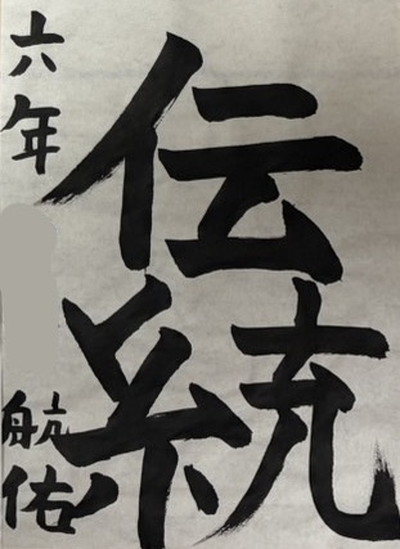 伝統
六年
航佑